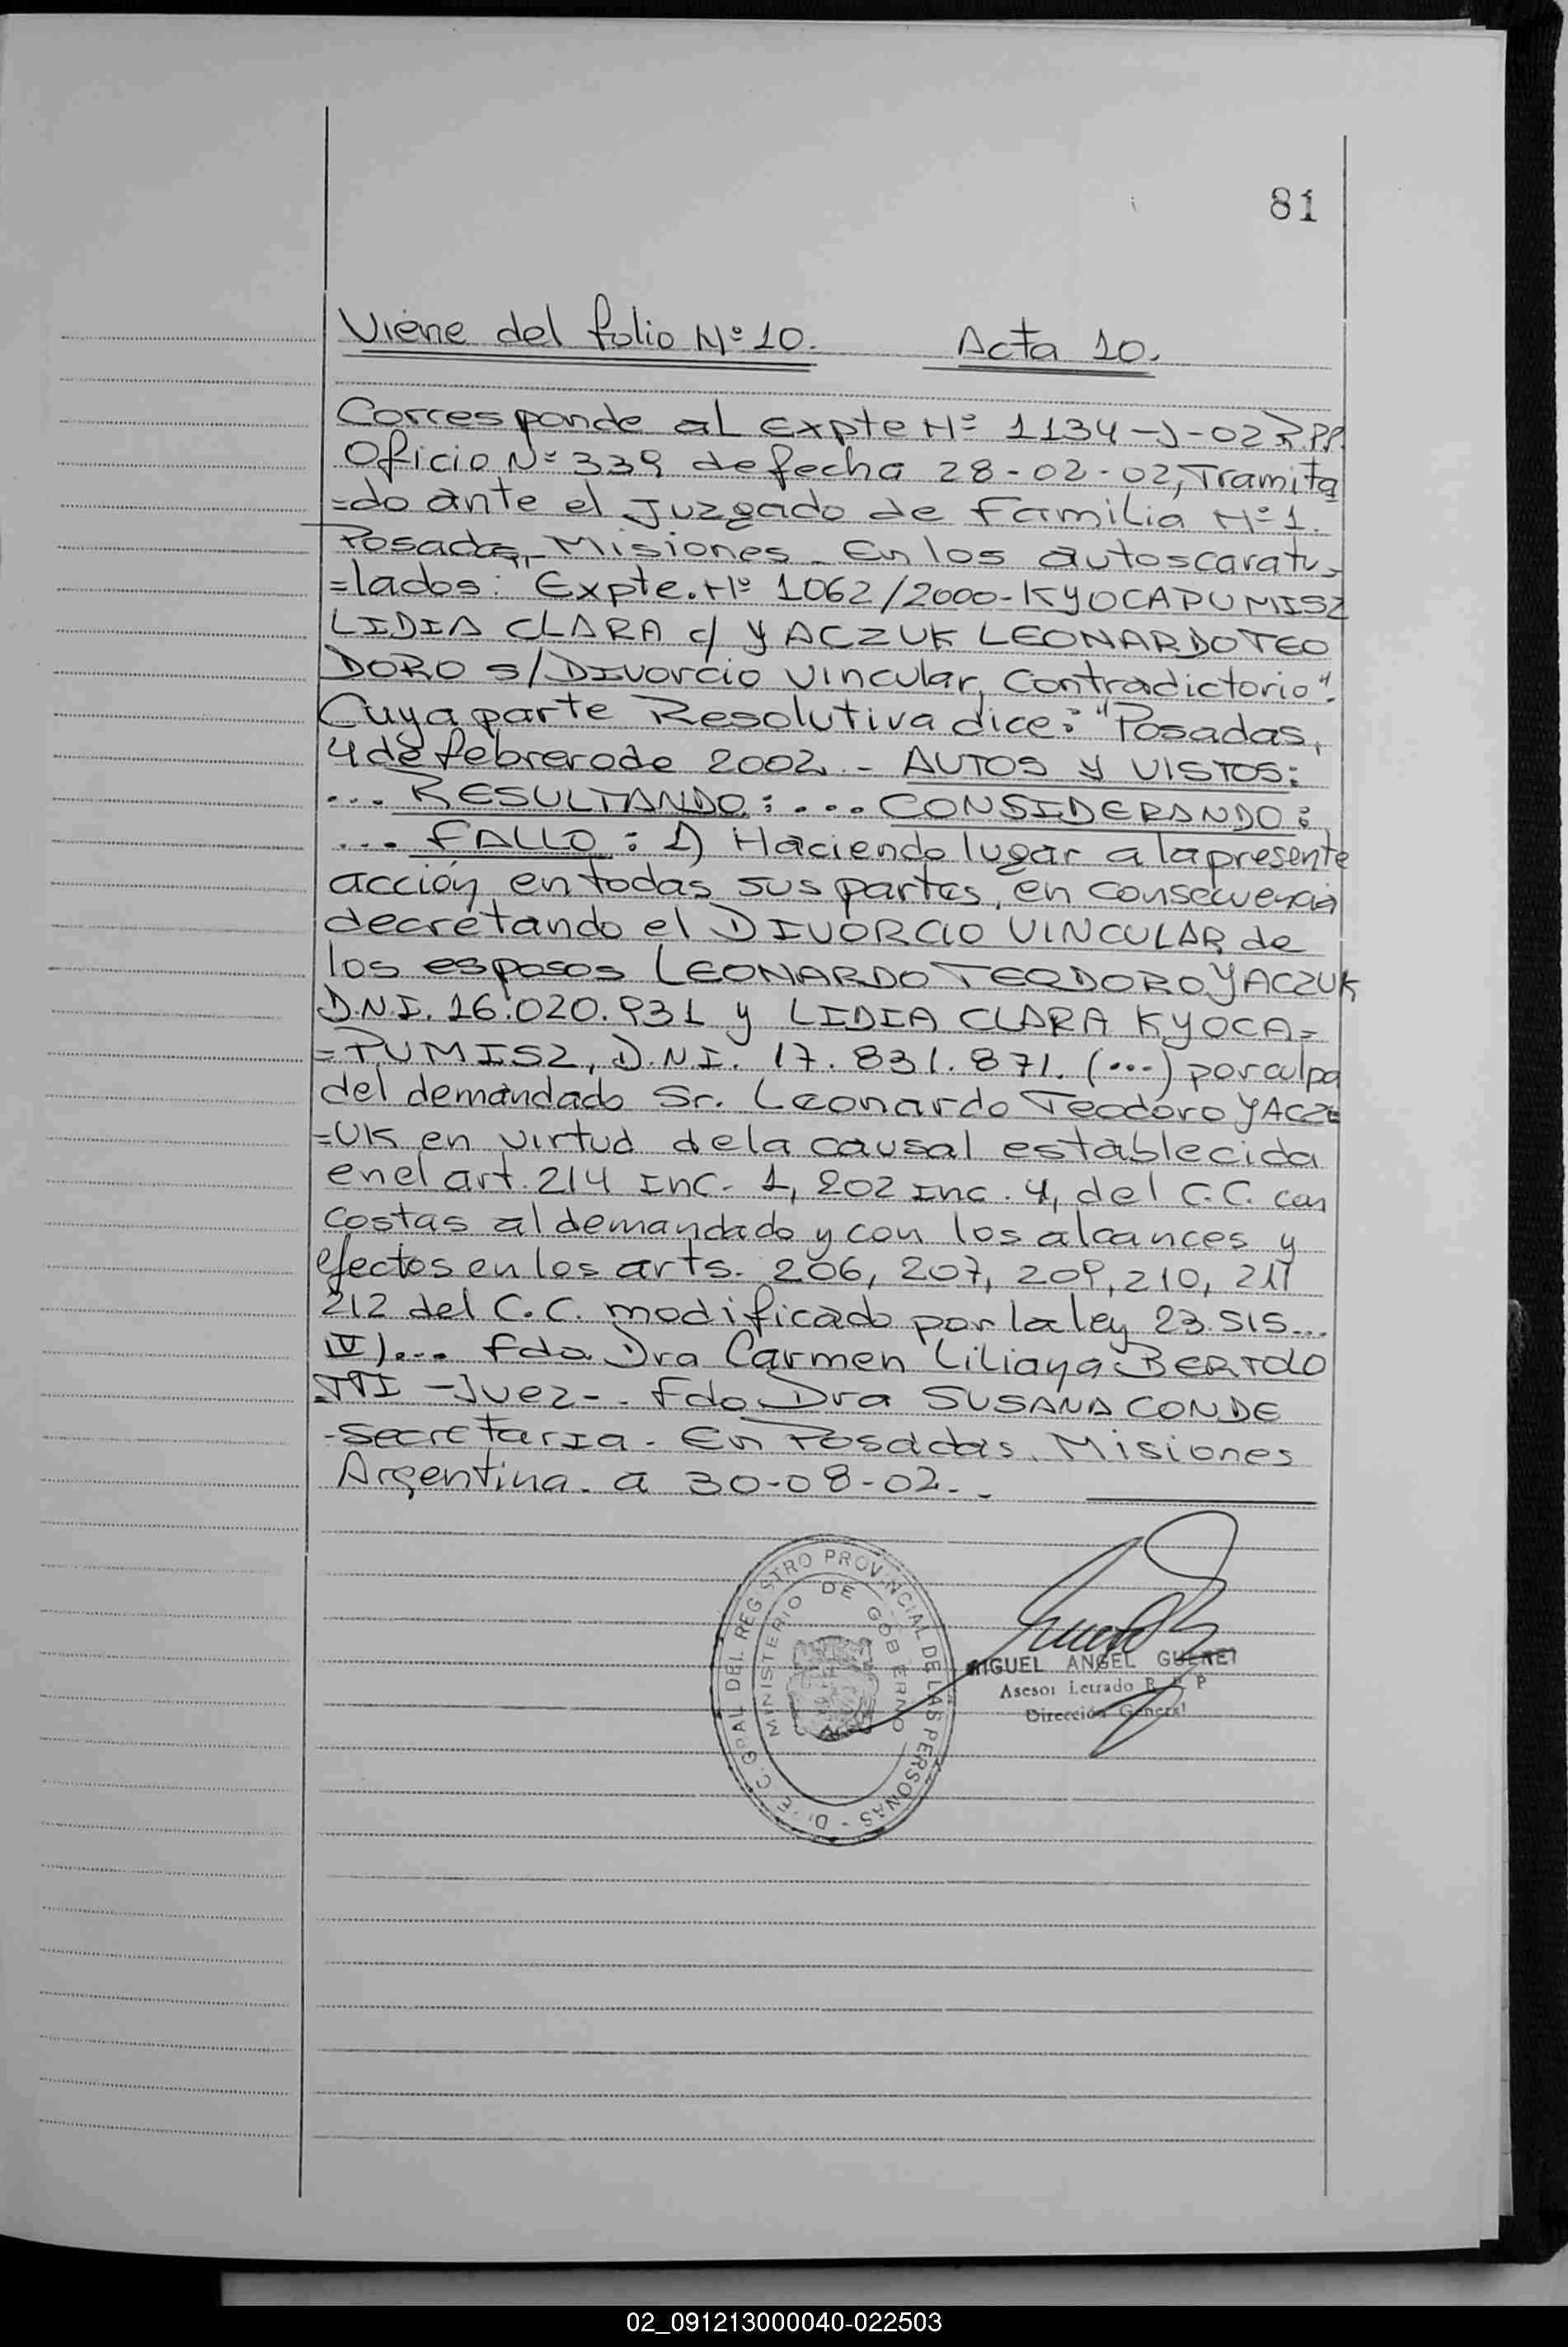 81
Viene del folio Nº 10. Acta 10.
Corresponde al Expte Nº 1134-J-02 R.P.P.
Oficio Nº 339 de fecha 28-02-02, Tramita
=do ante el Juzgado de Familia Nº 1.
Posadas, Misiones. En los autos caratu-
=lados: Expte. Nº 1062/2000-KYOCAPUMISZ
LIDIA CLARA c/ YACZUK LEONARDO TEO
DORO s/DIVORCIO Vincular, Contradictorio".
Cuya parte Resolutiva dice: "Posadas,
4 de febrero de 2002. - AUTOS Y VISTOS:
... RESULTANDO: .... CONSIDERANDO:
... FALLO: 1) Haciendo lugar a la presente
acción en todas sus partes, en consecuencia
decretando el DIVORCIO VINCULAR de
los esposos LEONARDO TEODORO YACZUK
D.N.I. 16.020.931 y LIDIA CLARA KYOCA=
=PUMISZ, D.N.I. 17.831.871. (...) por culpa
del demandado Sr. Leonardo Teodoro YACZ=
=UK en virtud de la causal establecida
en el art. 214 Inc. 1, 202 Inc. 4, del C.C. con
costas al demandado y con los alcances y
efectos en los arts. 206, 207, 209, 210, 211
212 del C.C. modificado por la ley 23.515...
IV)... Fdo Dra Carmen Liliana BERTOLO
TTI -Juez-. Fdo Dra SUSANA CONDE
-Secretaria. En Posadas, Misiones
Argentina. a 30-08-02. -
DIREC. GRAL DEL REGISTRO PROVINCIAL DE LAS PERSONAS -
MINISTERIO DE GOBIERNO
MIGUEL ANGEL
Asesor Letrado R P P
Dirección General
02_091213000040-022503